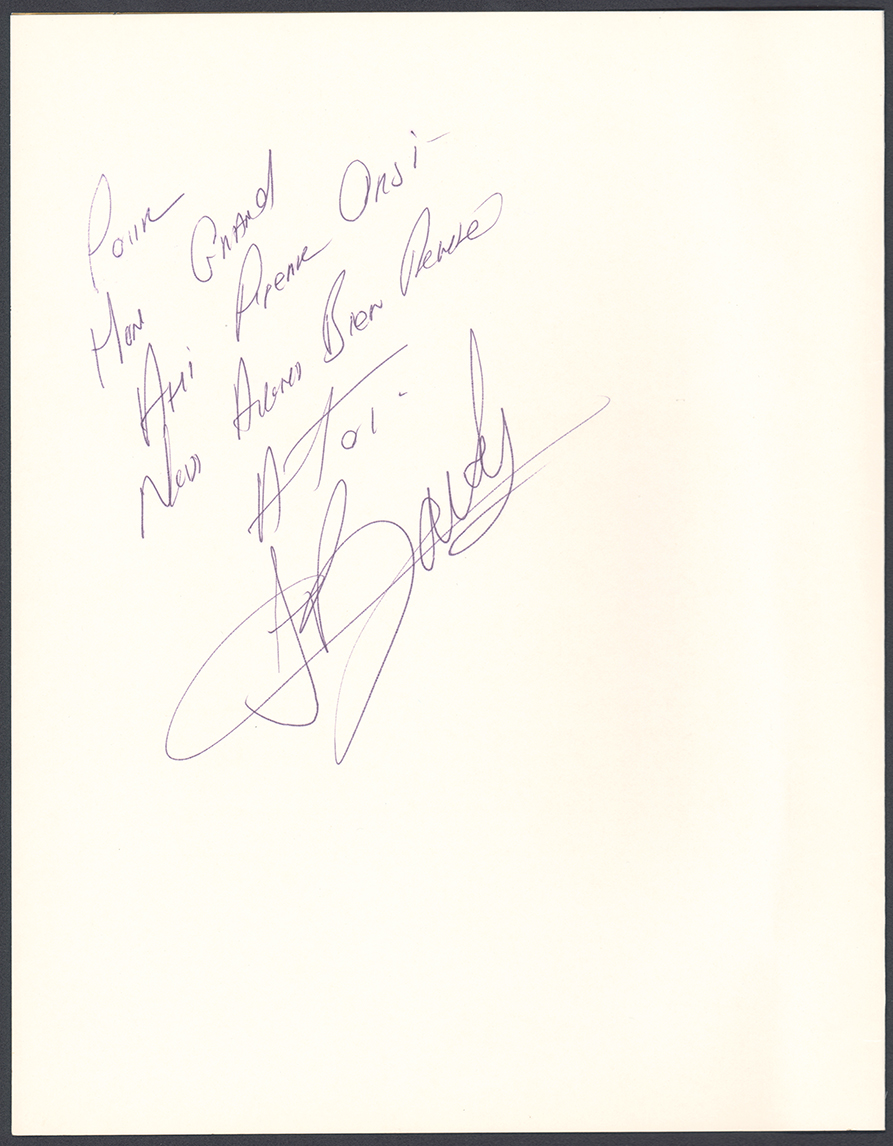 Pour
Mon Grand
Ami Pierre Orsi -
Nous Avons Bien Pensé
A Toi -